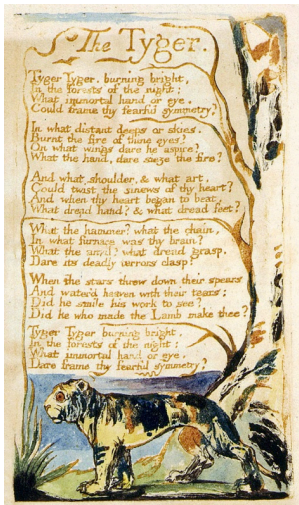 The Tyger.
Tyger Tyger. burning bright,
In the forests of the night:
What immortal hand or eye.
Could frame thy fearful symmetry?
In what distant deeps or skies.
Burnt the fire of thine eyes?
On what wings dare he aspire?
What the hand, dare sieze the fire?
And what shoulder, & what art,
Could twist the sinews of thy heart?
And when thy heart began to beat,
What dread hand? & what dread feet?
What the hammer? what the chain,
In what furnace was thy brain?
What the anvil? what dread grasp,
Dare its deadly terrors clasp!
When the stars threw down their spears
And water'd heaven with their tears:
Did he smile his work to see?
Did he who made the Lamb make thee?
Tyger Tyger burning bright,
In the forests of the night:
What immortal hand or eye,
Dare frame thy fearful symmetry?